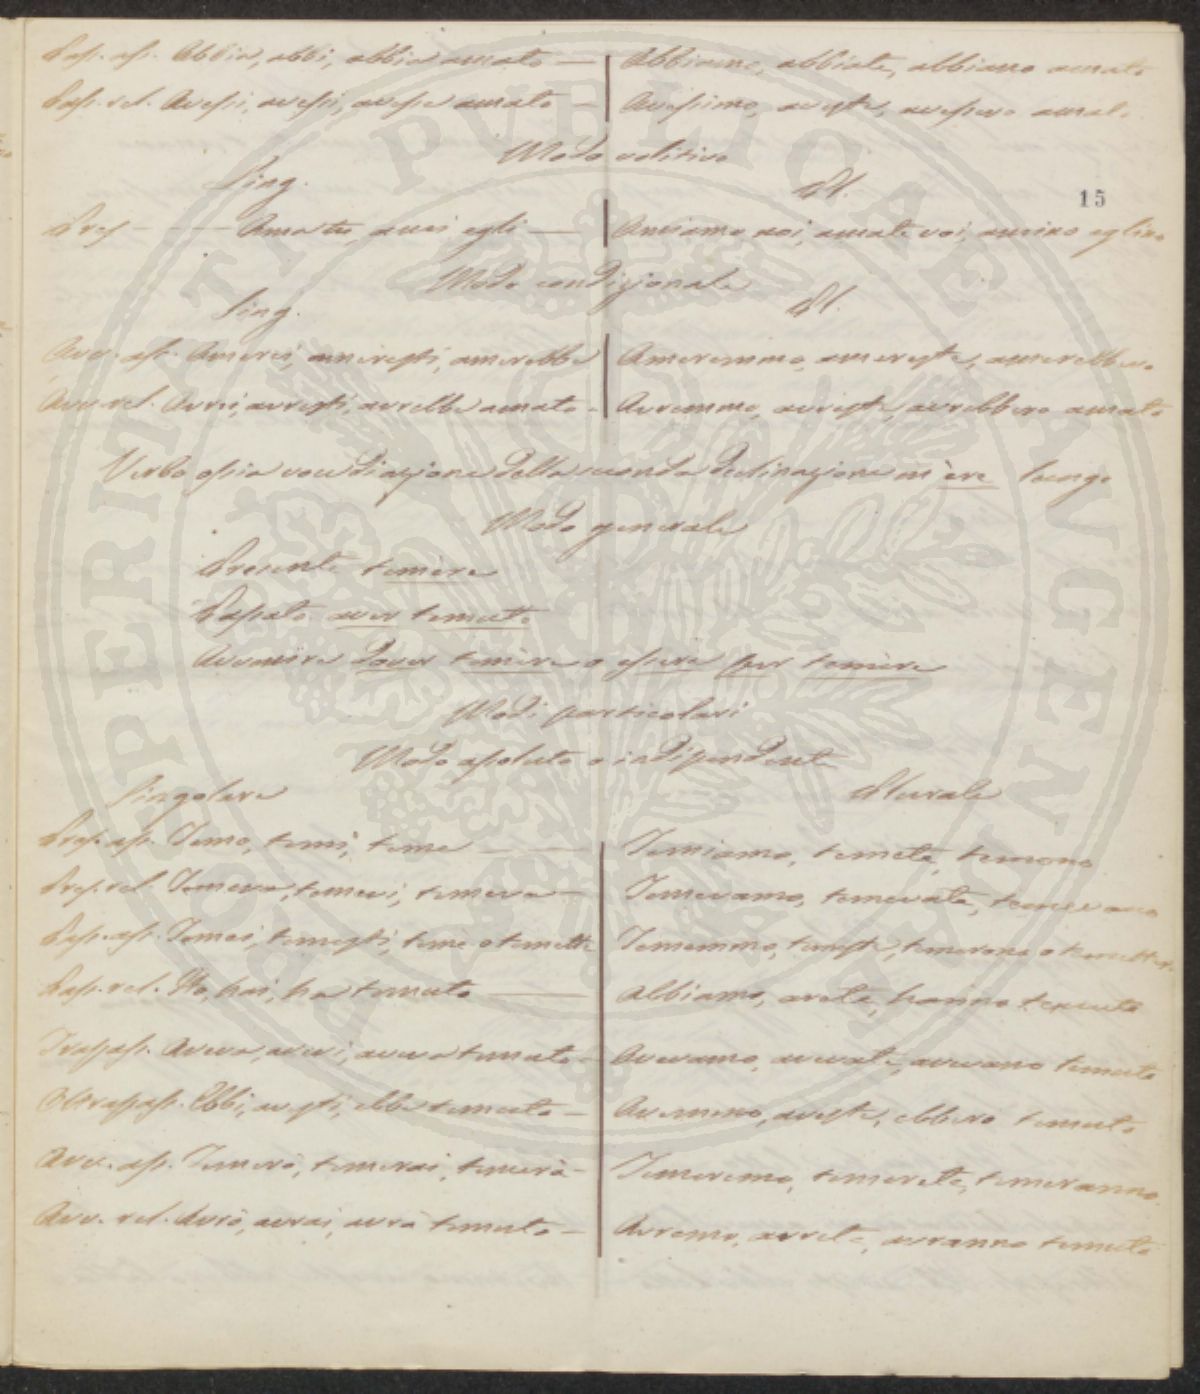 Pass. ass. Abbia, abbi, abbia amato — Abbiamo, abbiate, abbiano amato
Pass. rel. Avessi, avessi, avesse amato — Avessimo, aveste, avessero amato
Modo volitivo
Sing. Pl.
15
Pres — — Ama tu, ami egli — Amiamo noi, amate voi, amino eglino
Modo condizionale
Sing. Pl.
Avv. ass. Amerei, ameresti, amerebbe Ameremmo, amereste, amerebbero
Avv. rel. Avrei, avresti, avrebbe amato - Avremmo, avreste, avrebbero amato
Verbo ossia voce di azione della seconda declinazione in ère lungo
Modo generale
Presente temere
Passato aver temuto
Avvenire dover temere o essere per temere
Modi particolari
Modo assoluto o indipendente
Singolare Plurale
Pres. ass. Temo, temi, teme — Temiamo, temete, temono
Pres. rel. Temeva, temevi, temeva — Temevamo, temevate, temevano
Pass. ass. Temei, temesti, teme o temette Tememmo, temeste, temerono o temettero
Pass. rel. Ho, hai, ha temuto — Abbiamo, avete, hanno temuto
Trapass. Aveva, avevi, aveva temuto - Avevamo, avevate, avevano temuto
Oltrapass. Ebbi, avesti, ebbe temuto — Avemmo, aveste, ebbero temuto
Avv. ass. Temerò, temerai, temerà - Temeremo, temerete, temeranno
Avv. rel. Avrò, avrai, avrà temuto — Avremo, avrete, avranno temuto
PROSPERITATI PUBLICAE AUGENDAE